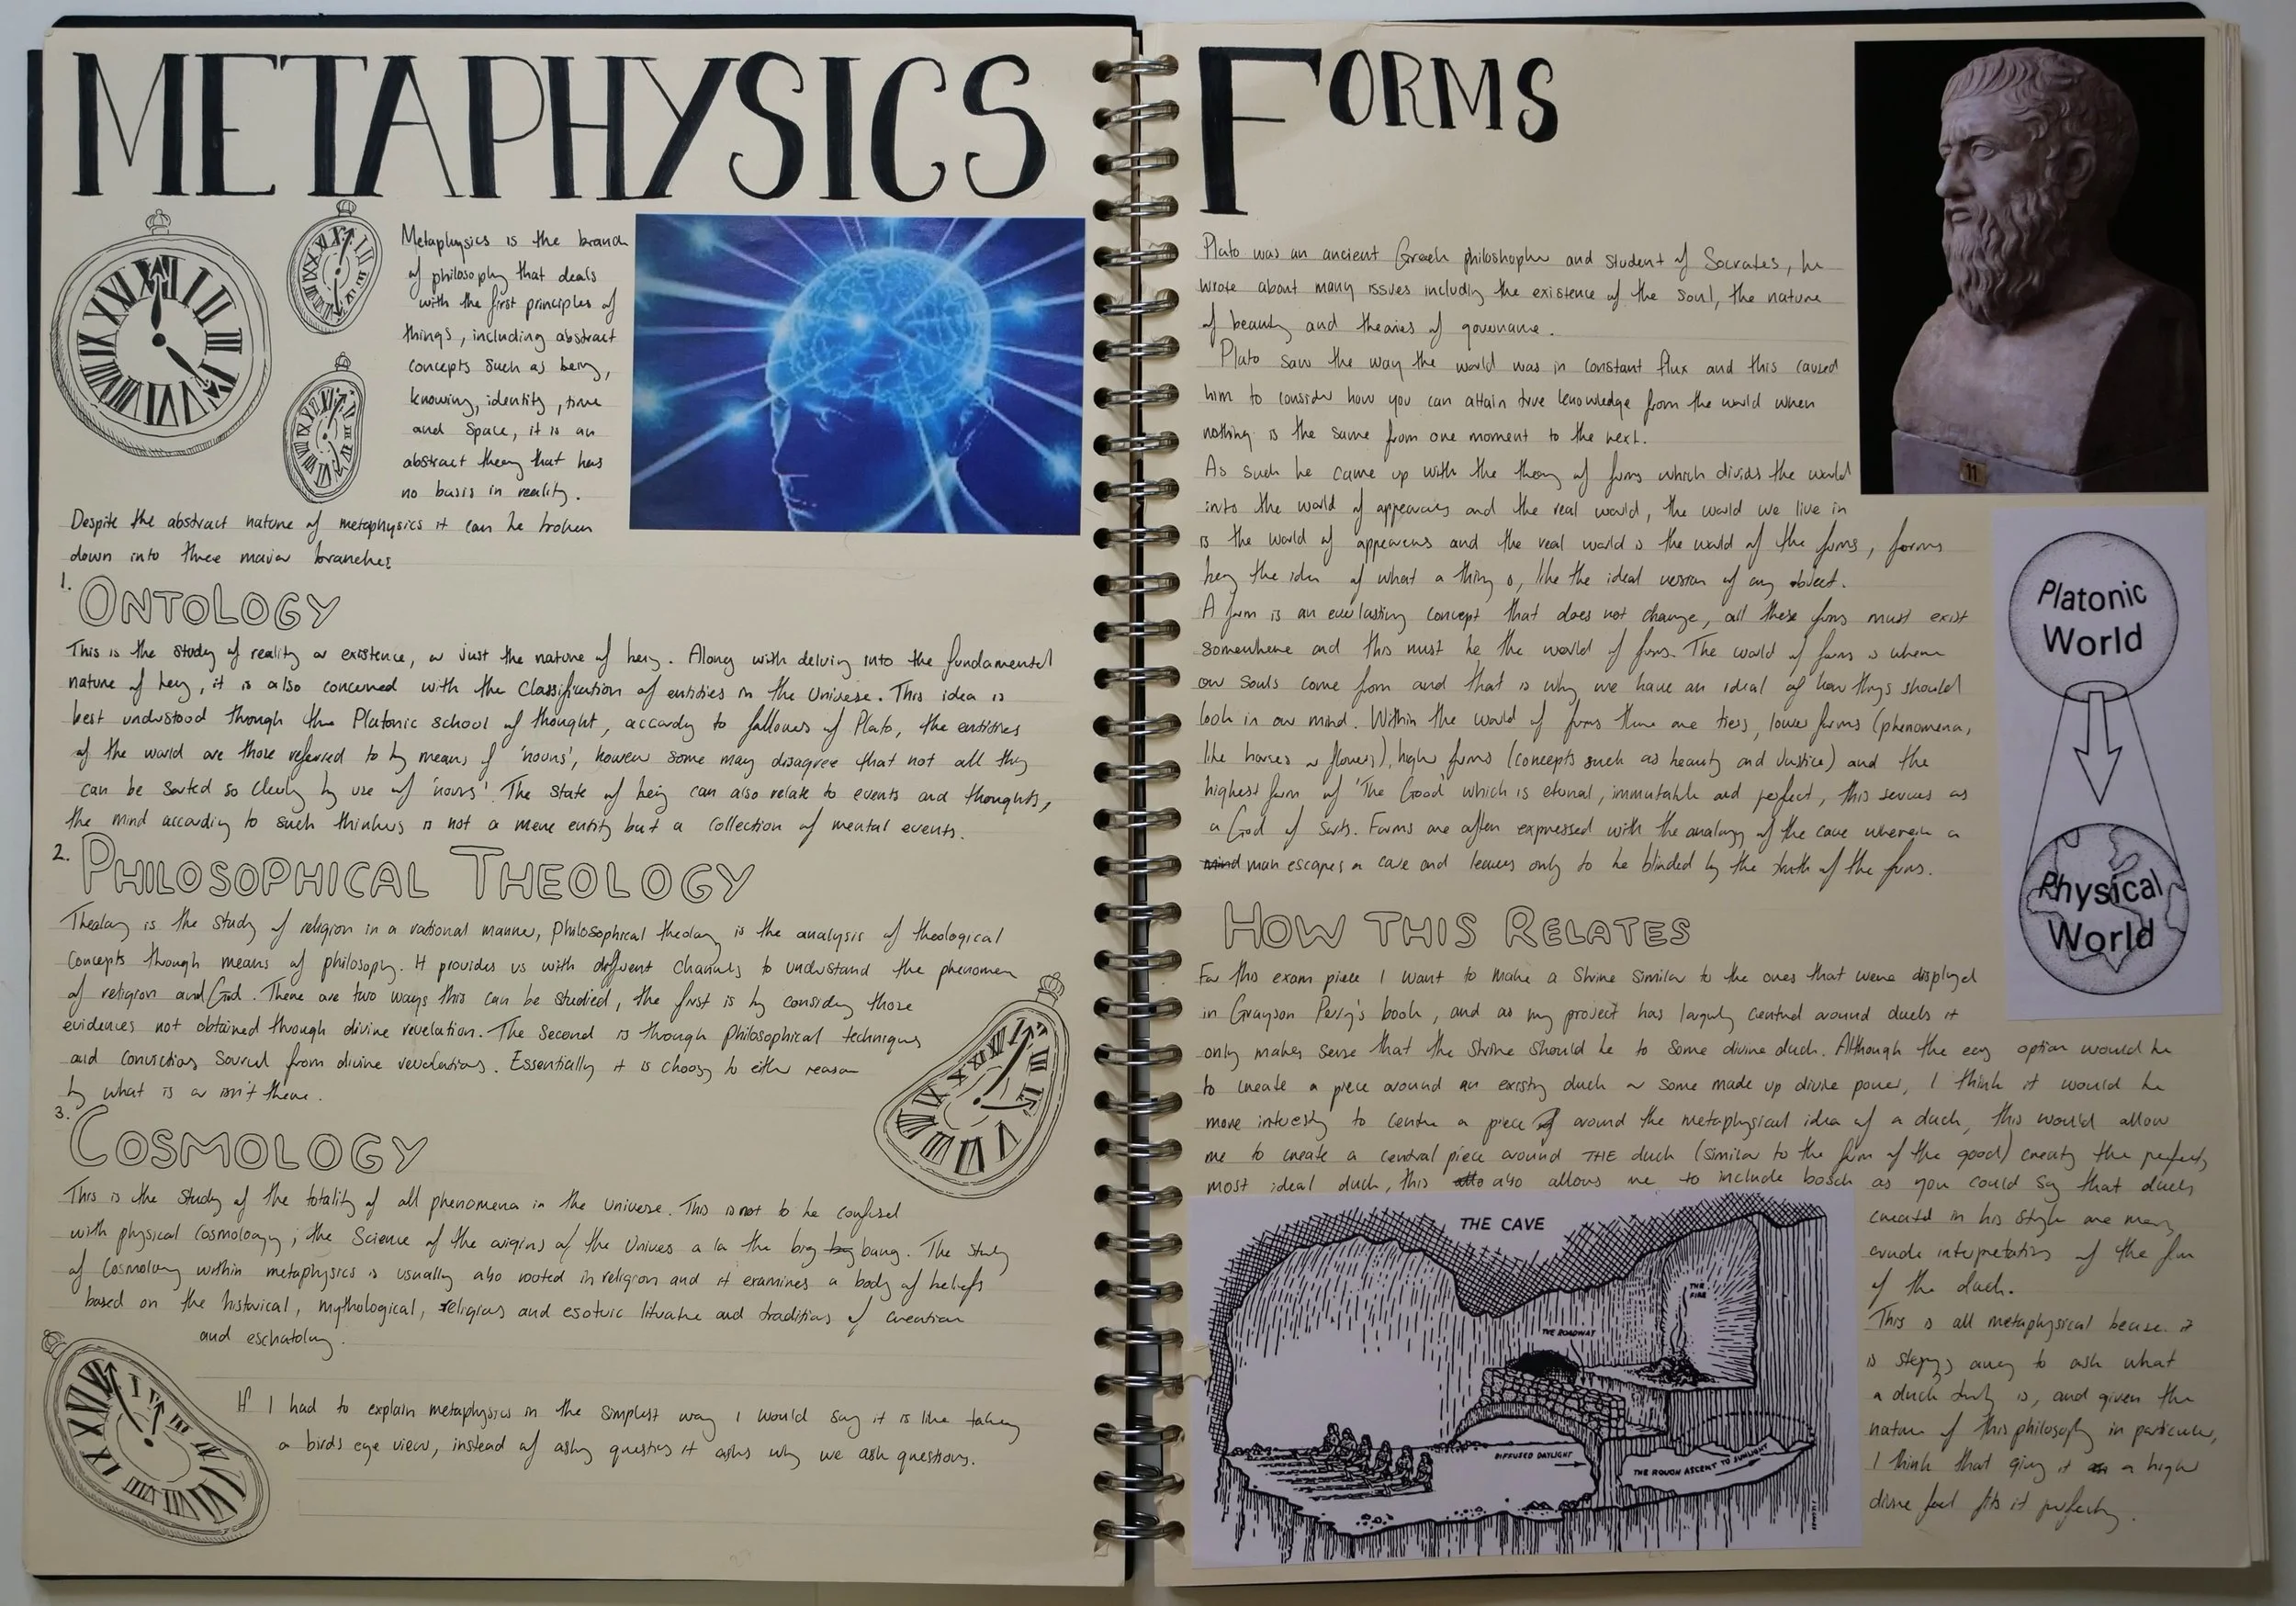 METAPHYSICS
Metaphysics is the branch
of philosophy that deals
with the first principles of
things, including abstract
concepts such as being,
knowing, identity, time
and space, it is an
abstract theory that has
no basis in reality.
Despite the abstract nature of metaphysics it can be broken
down into three major branches
1. ONTOLOGY
This is the study of reality or existence, or just the nature of being. Along with delving into the fundamental
nature of being, it is also concerned with the classification of entities in the Universe. This idea is
best understood through the Platonic school of thought, according to followers of Plato, the entities
of the world are those referred to by means of 'nouns', however some may disagree that not all things
can be sorted so clearly by use of 'nouns'. The state of being can also relate to events and thoughts,
the mind according to such thinkers is not a mere entity but a collection of mental events.
2. PHILOSOPHICAL THEOLOGY
Theology is the study of religion in a rational manner, Philosophical theology is the analysis of theological
concepts through means of philosophy. It provides us with different channels to understand the phenomen
of religion and God. There are two ways this can be studied, the first is by considering those
evidences not obtained through divine revelation. The second is through philosophical techniques
and convictions sourced from divine revelations. Essentially it is choosing to either reason
by what is or isn't there.
3. COSMOLOGY
This is the study of the totality of all phenomena in the universe. This is not to be confused
with physical cosmology; the science of the origins of the Univers a la the big bang. The study
of cosmology within metaphysics is usually also rooted in religion and it examines a body of beliefs
based on the historical, mythological, religious and esoteric literature and traditions of creation
and eschatology.
If I had to explain metaphysics in the simplest way I would say it is like taking
a birds eye view, instead of asking questions it asks why we ask questions.
FORMS
Plato was an ancient Greek philoshopher and student of Socrates, he
wrote about many issues including the existence of the soul, the nature
of beauty and theories of governance.
Plato saw the way the world was in constant flux and this caused
him to consider how you can attain true knowledge from the world when
nothing is the same from one moment to the next.
As such he came up with the theory of forms which divides the world
into the world of appearances and the real world, the world we live in
is the world of appearances and the real world is the world of the forms, forms
being the idea of what a thing is, like the ideal version of any object.
A form is an everlasting concept that does not change, all these forms must exist
somewhere and this must be the world of forms. The world of forms is where
our souls come from and that is why we have an ideal of how things should
look in our mind. Within the world of forms there are tiers, lower forms (phenomena,
like horses or flowers), higher forms (concepts such as beauty and Justice) and the
highest form of 'The Good' which is eternal, immutable and perfect, this serves as
a God of sorts. Forms are often expressed with the analogy of the cave wherein a
mind man escapes a cave and leaves only to be blinded by the truth of the forms.
11
Platonic
World
Physical
World
HOW THIS RELATES
For this exam piece I want to make a Shrine similar to the ones that were displayed
in Grayson Perry's book, and as my project has largely centred around ducks it
only makes sense that the shrine should be to some divine duck. Although the easy option would be
to create a piece around an existing duck or some made up divine power, I think it would be
more interesting to centre a piece around the metaphysical idea of a duck, this would allow
me to create a central piece around THE duck (similar to the form of the good) creating the perfect,
most ideal duck, this also allows me to include bosch as you could say that ducks
created in his style are merely
crude interpretations of the form
of the duck.
This is all metaphysical because it
is stepping away to ask what
a duck truly is, and given the
nature of this philosophy in particular,
I think that giving it a high
divine feel fits it perfectly.
THE CAVE
THE FIRE
THE ROADWAY
DIFFUSED DAYLIGHT
THE ROUGH ASCENT TO SUNLIGHT